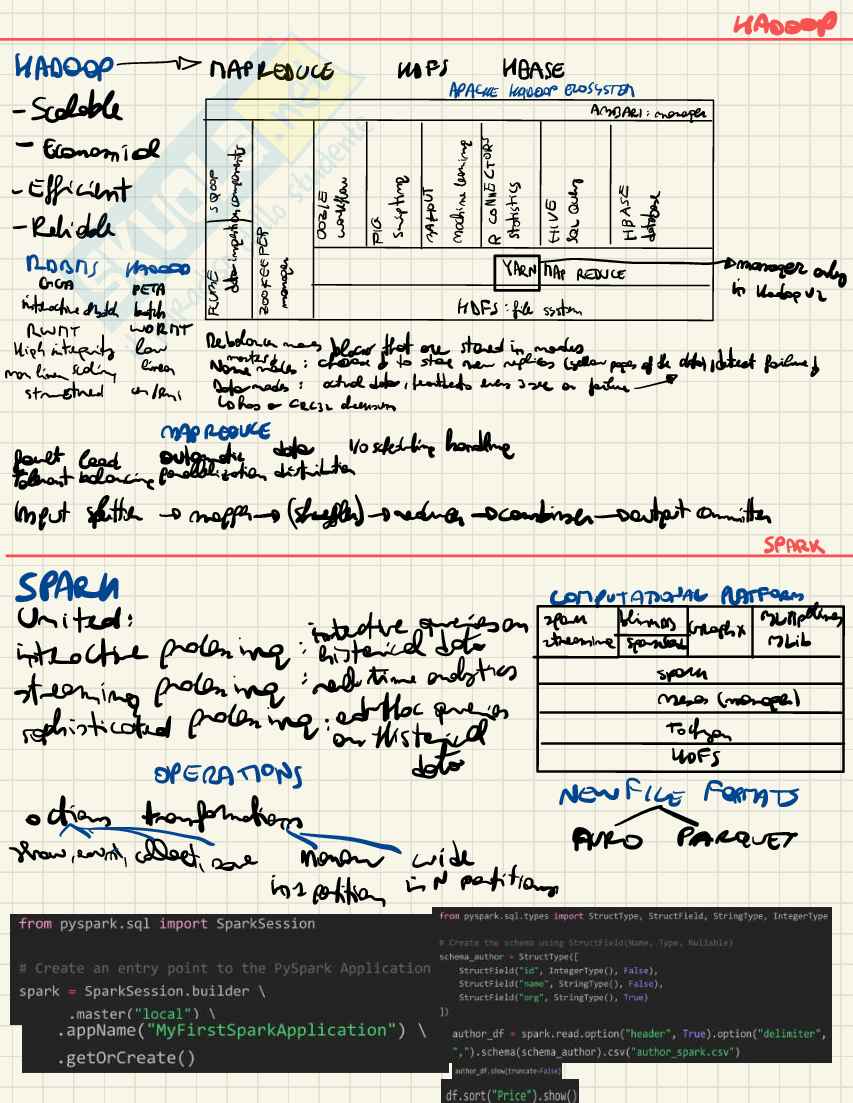 HADOOP
HADOOP → MAPREDUCE HDFS HBASE
- Scalable
- Economical
- Efficient
- Reliable
APACHE HADOOP ECOSYSTEM
AMBARI: manager
SQOOP
FLUME
data ingestion components
ZOOKEEPER manager
OOZIE workflow
PIG scripting
MAHOUT machine learning
R CONNECTORS statistics
HIVE SQL QUERY
HBASE database
YARN MAP REDUCE
→ manager only in Hadoop V2
HDFS: file system
RDBMS HADOOP
GIGA PETA
interactive & batch batch
RWMT WORMT
High integrity low
non linear scaling linear
structured
Rebalancer moves blocks that are stored in nodes
master
Name nodes: choose to store new replicas (yellow pages of the data), detect failure
Data nodes: actual data, heartbeats every 3 sec or failure
MAPREDUCE
fault tolerant load balancing automatic parallelization data distribution I/O scheduling handling
Input splitter → mapper → (shuffler) → reducer → combiner → output committer
SPARK
SPARK
United:
interactive processing: interactive queries on historical data
streaming processing: real time analytics
sophisticated processing: ad-hoc queries on historical data
COMPUTATIONAL PLATFORM
spark streaming
GraphX
MLlib
spark
mesos (manager)
Tachyon
HDFS
OPERATIONS
actions transformations
show, count, collect, save narrow wide
in 1 partition in N partitions
NEW FILE FORMATS
AVRO PARQUET
from pyspark.sql import SparkSession
# Create an entry point to the PySpark Application
spark = SparkSession.builder \
.master("local") \
.appName("MyFirstSparkApplication") \
.getOrCreate()
from pyspark.sql.types import StructType, StructField, StringType, IntegerType
# Create the schema using StructField(Name, Type, Nullable)
schema_author = StructType([
StructField("id", IntegerType(), False),
StructField("name", StringType(), False),
StructField("org", StringType(), True)
])
author_df = spark.read.option("header", True).option("delimiter",
",").schema(schema_author).csv("author_spark.csv")
author_df.show(truncate=False)
df.sort("Price").show()